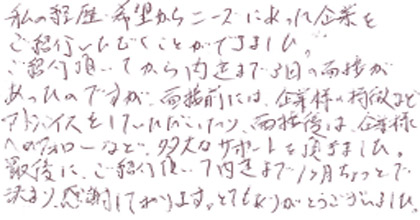 私の経歴・希望からニーズにあった企業を
ご紹介いただくことができました。
ご紹介頂いてから内定まで3回の面接が
あったのですが、面接前には、企業様の特徴など
アドバイスをしていただいたり、面接後は、企業様
へのフォローなど、多大なサポートを頂きました。
最後に、ご紹介頂いて内定まで1ヶ月ちょっとで
決まり、感謝しております。とてもありがとうございました。